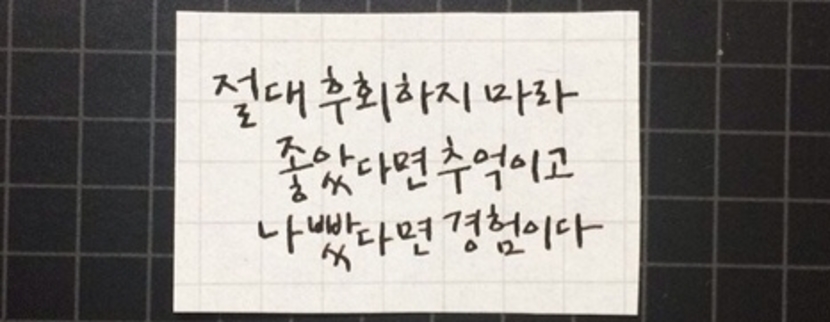 절대 후회하지 마라
좋았다면 추억이고
나빴다면 경험이다